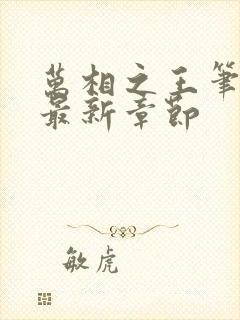 萬相之王筆
最新章節
敏虎